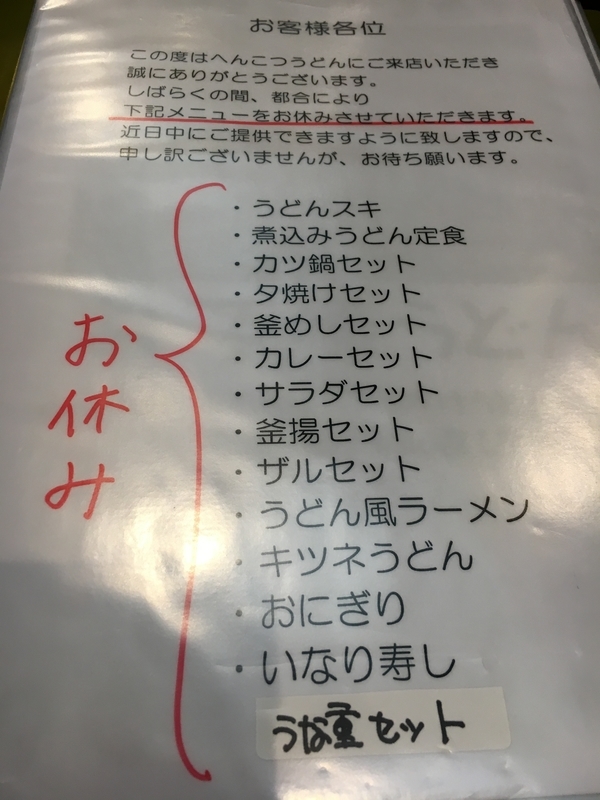 お客様各位
この度はへんこつうどんにご来店いただき
誠にありがとうございます。
しばらくの間、都合により
下記メニューをお休みさせていただきます。
近日中にご提供できますように致しますので、
申し訳ございませんが、お待ち願います。
・うどんスキ
・煮込みうどん定食
・カツ鍋セット
・夕焼けセット
・釜めしセット
・カレーセット
・サラダセット
・釜揚セット
・ザルセット
・うどん風ラーメン
・キツネうどん
・おにぎり
・いなり寿し
うな重セット
お休み